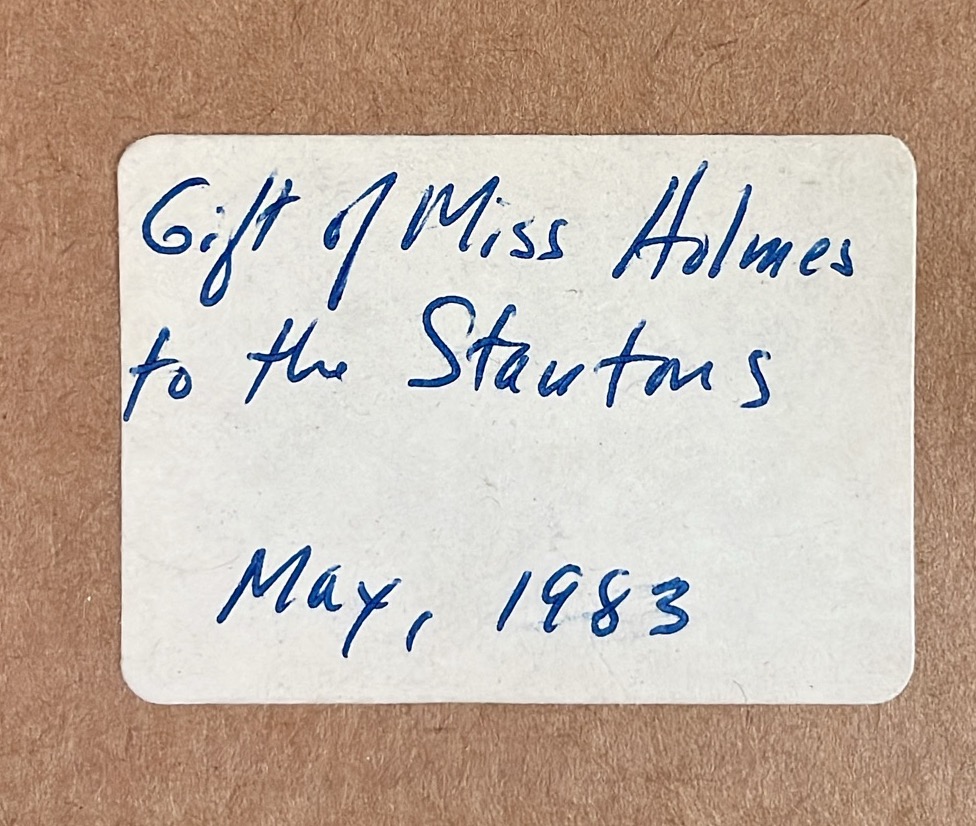 Gift of Miss Holmes
to the Stantons
May, 1983